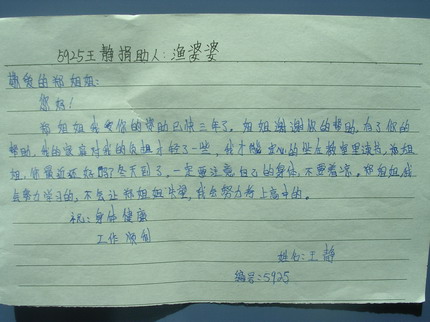 5925王静捐助人：渔婆婆
敬爱的郑姐姐：
您好！
郑姐姐我受你的帮助已快三年了，姐姐谢谢你的帮助，有了你的
帮助，我的家庭对我的负担才轻了一些，我才能安心的坐在教室里读书，郑姐
姐，你最近还好吗？冬天到了，一定要注意自己的身体，不要着凉。郑姐姐，我
会努力学习的，不会让郑姐姐失望，我会努力考上高中的。
祝：身体健康
工作顺利
姓名：王静
编号：5925